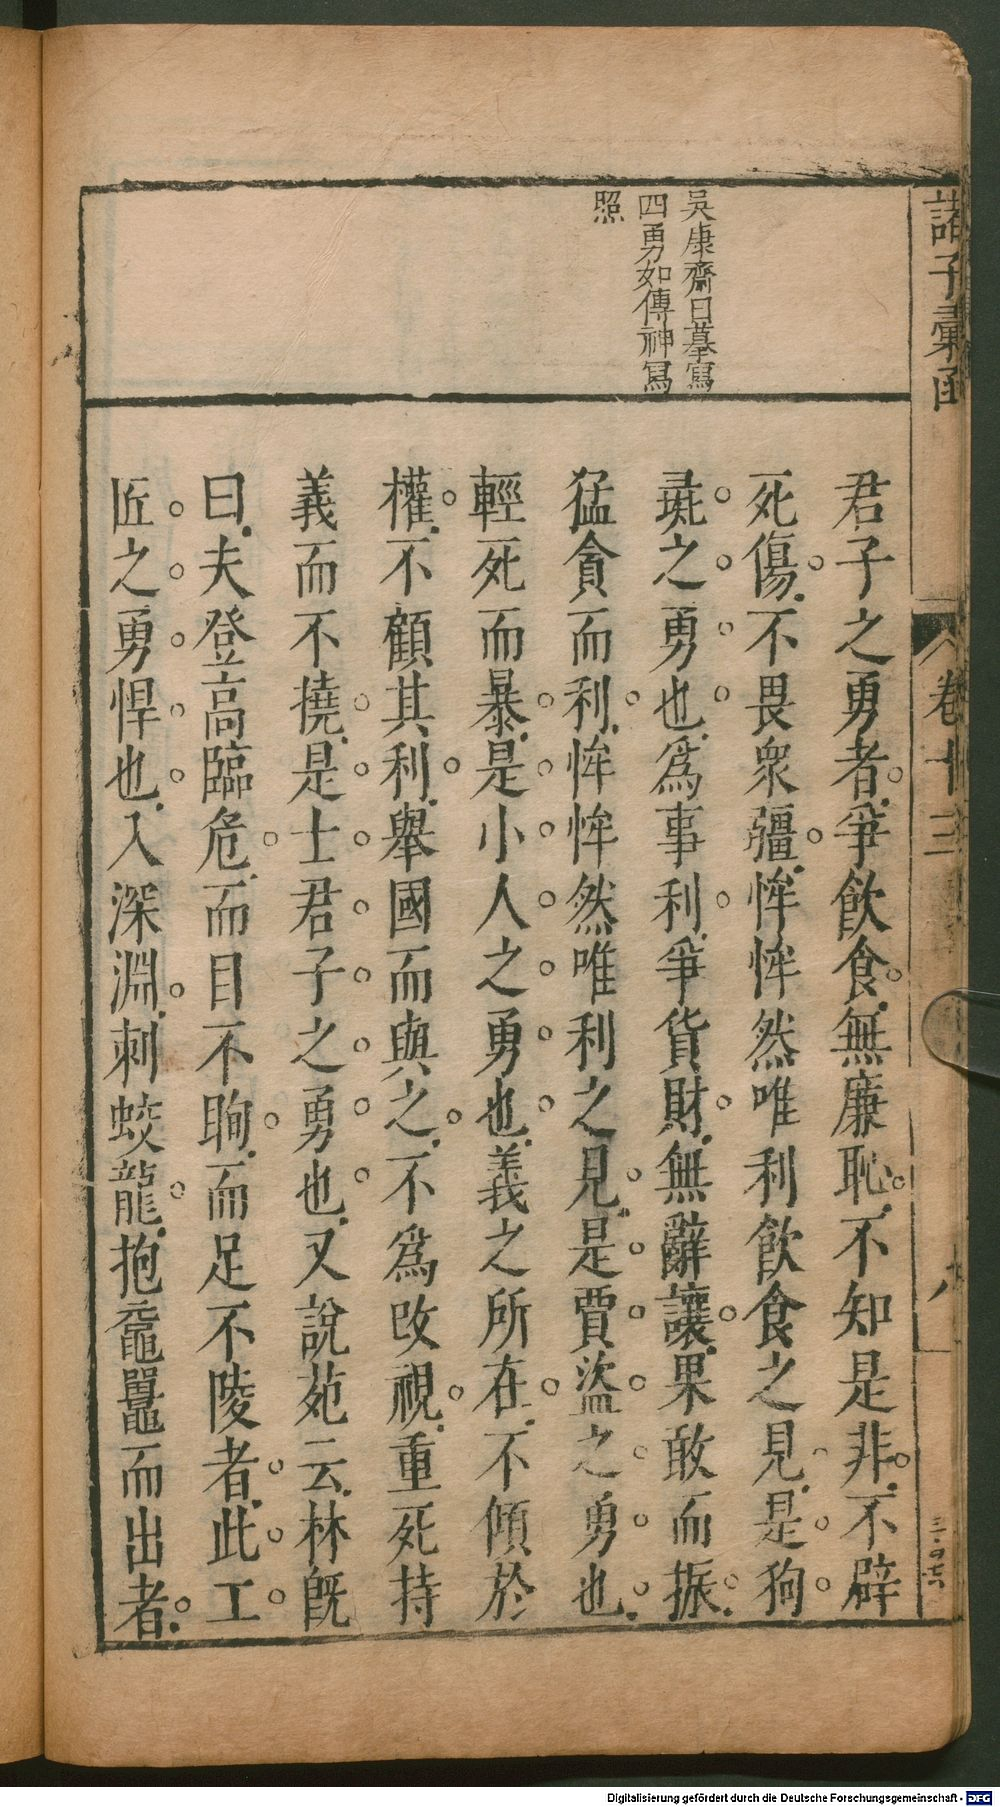 諸子彙函
卷十三
吳康齋曰摹寫
四勇如傳神寫
照
君子之勇者爭飲食無廉恥不知是非不辟
死傷不畏衆彊恈恈然唯利飲食之見是狗
彘之勇也爲事利爭貨財無辭讓果敢而振
猛貪而利恈恈然唯利之見是賈盜之勇也
輕死而暴是小人之勇也義之所在不傾於
權不顧其利舉國而與之不爲改視重死持
義而不撓是士君子之勇也又說苑云林旣
曰夫登高臨危而目不眴而足不陵者此工
匠之勇悍也入深淵刺蛟龍抱黿鼉而出者
Digitalisierung gefördert durch die Deutsche Forschungsgemeinschaft - DFG